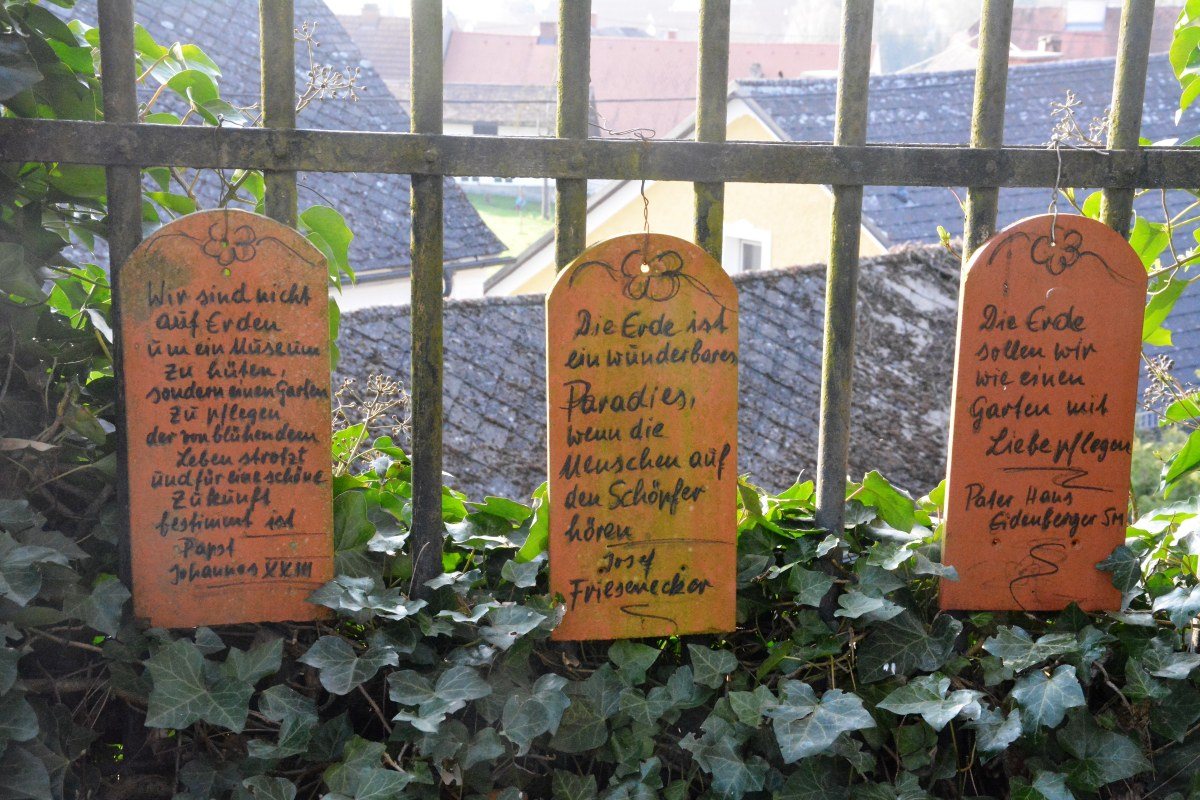 Wir sind nicht
auf Erden
um ein Museum
zu hüten,
sondern einen Garten
zu pflegen
der von blühendem
Leben strotzt
und für eine schöne
Zukunft
bestimmt ist
Papst
Johannes XXIII
Die Erde ist
ein wunderbares
Paradies,
wenn die
Menschen auf
den Schöpfer
hören
Josef
Friesenecker
Die Erde
sollen wir
wie einen
Garten mit
Liebe pflegen
Pater Hans
Eidenberger SM